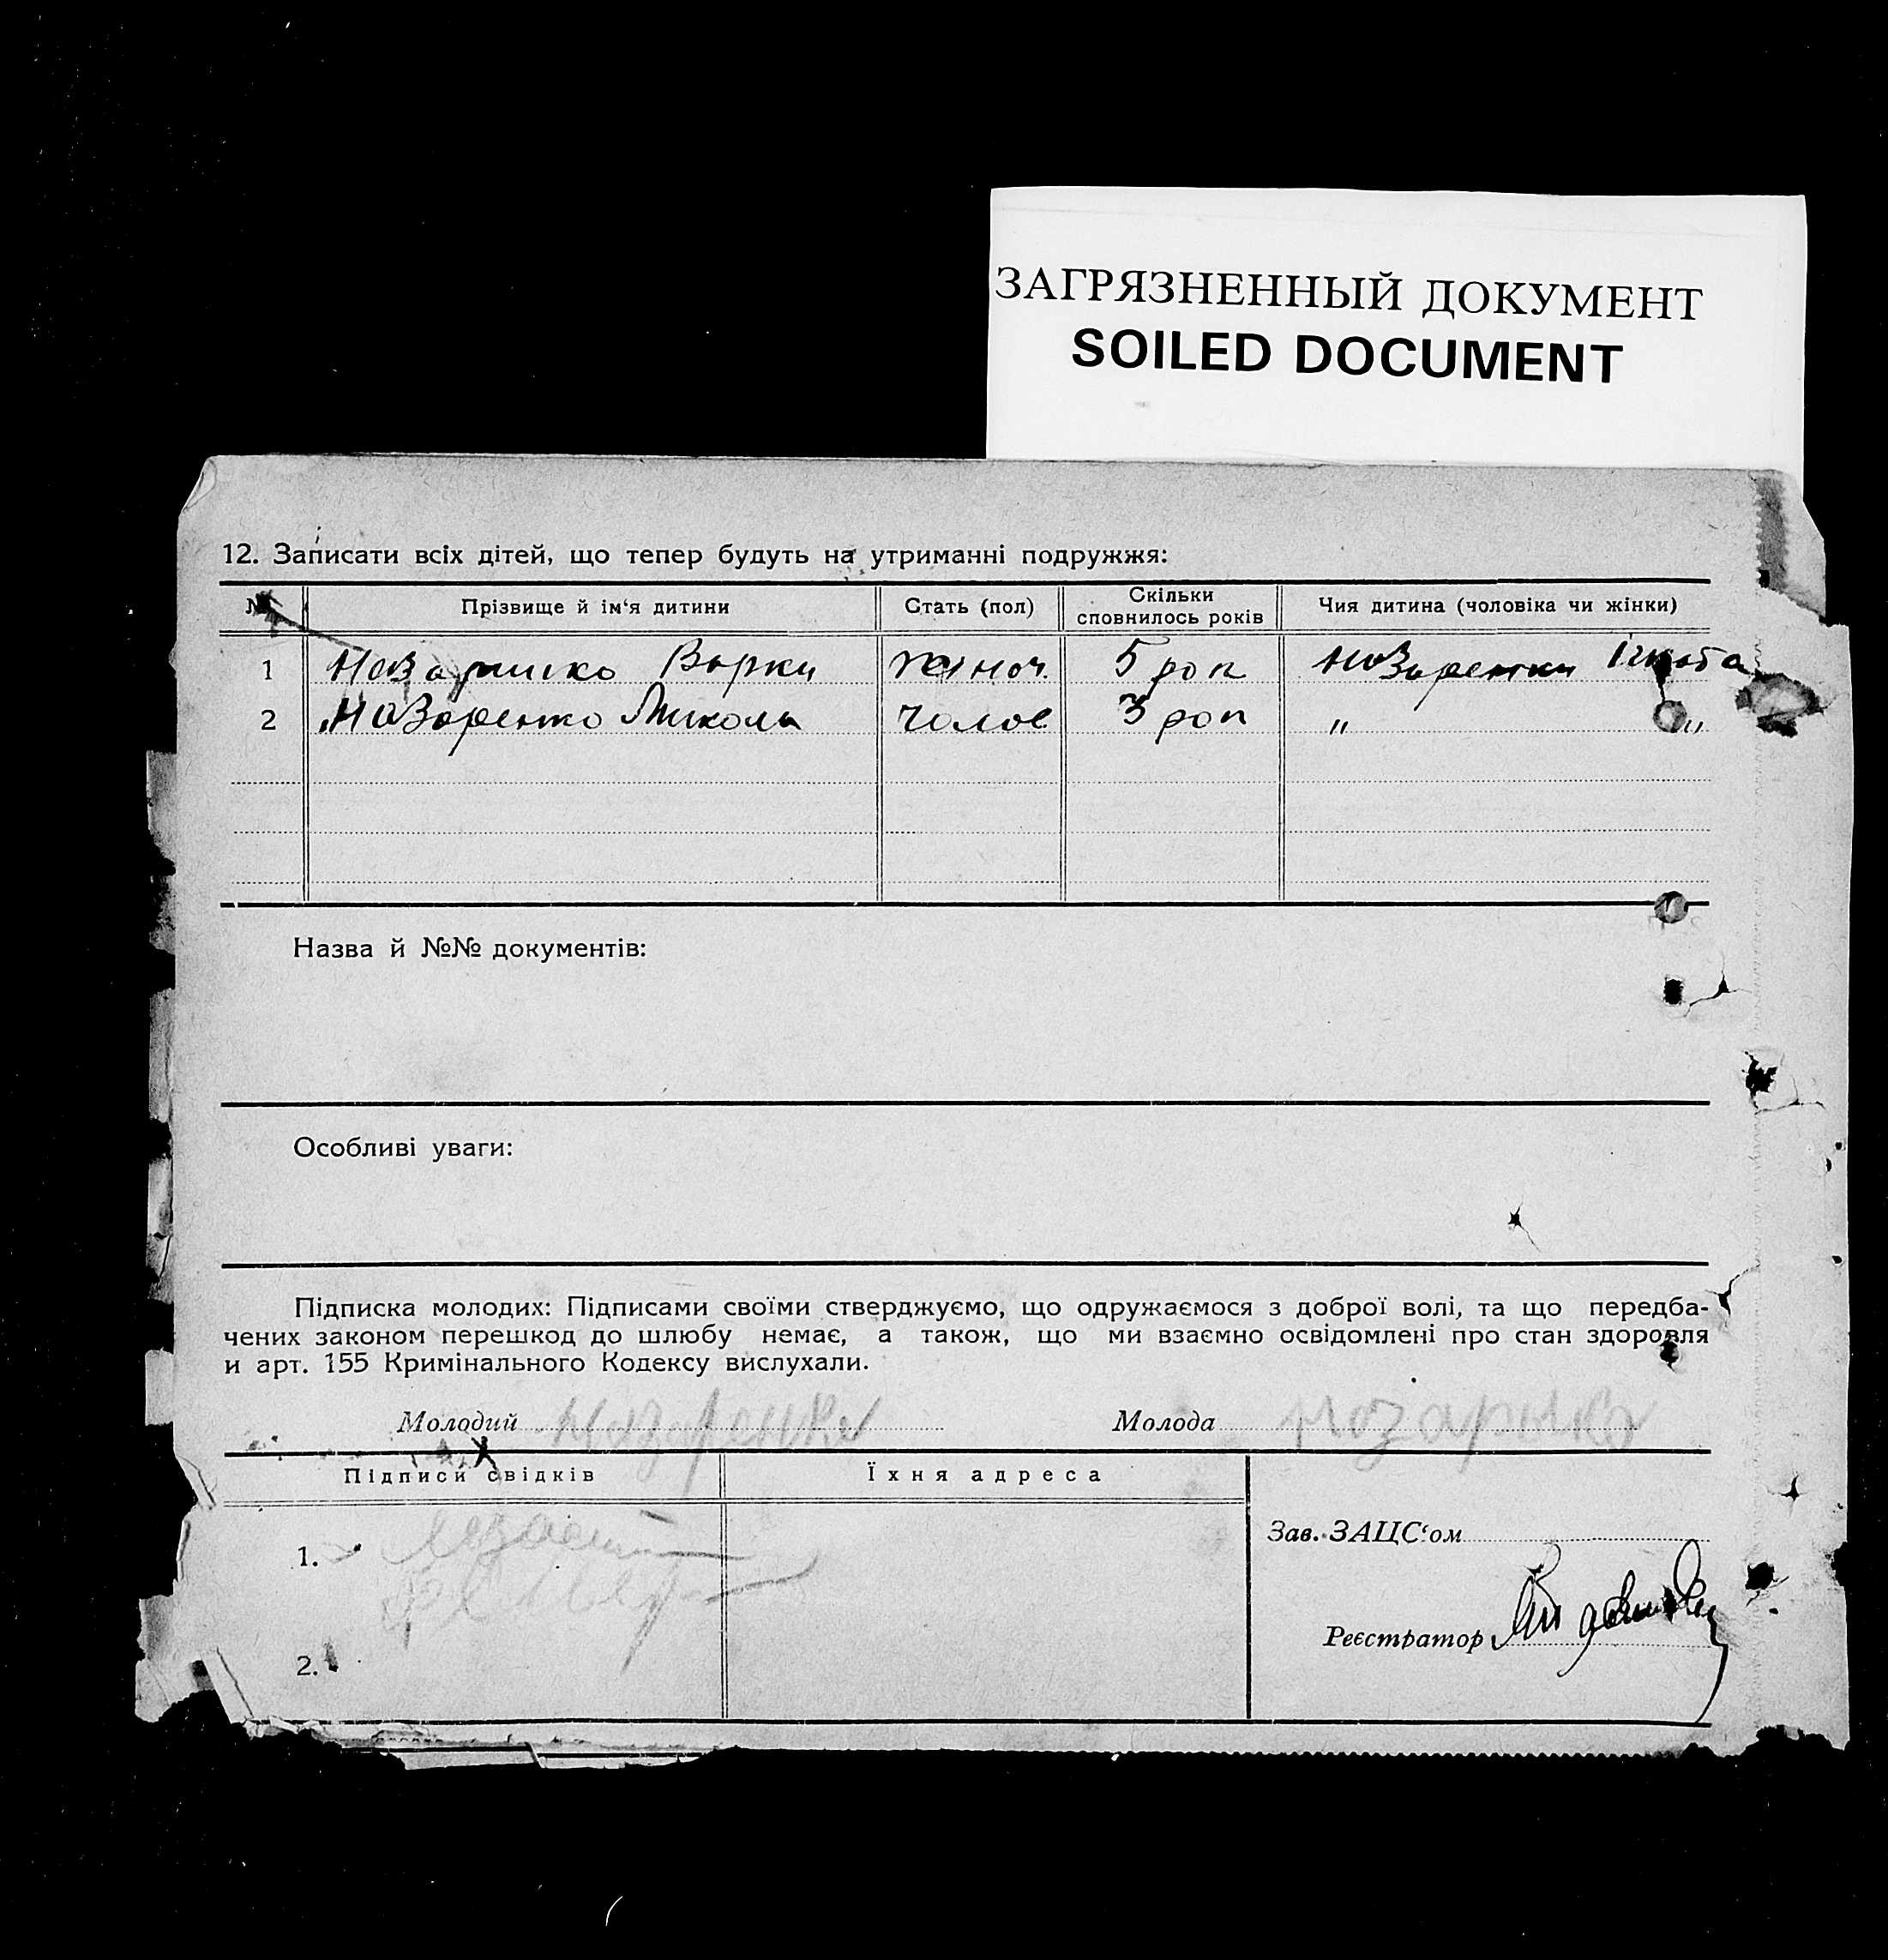 ЗАГРЯЗНЕННЫЙ ДОКУМЕНТ
SOILED DOCUMENT
12. Записати всіх дітей, що тепер будуть на утриманні подружжя:
№ Прізвище й ім‘я дитини Стать (пол) Скільки сповнилось років Чия дитина (чоловіка чи жінки)
1 Варки жіноч. 5 рок Назаренки
2 Назаренко Микола чолов 3 рок „ „
Назва й №№ документів:
Особливі уваги:
Підписка молодих: Підписами своїми стверджуємо, що одружаємося з доброї волі, та що передба-
чених законом перешкод до шлюбу немає, а також, що ми взаємно освідомлені про стан здоровля
и арт. 155 Кримінального Кодексу вислухали.
Молодий Назаренко Молода
Підписи свідків Їхня адреса
Зав. ЗАЦС‘ом
1.
Реєстратор
2.